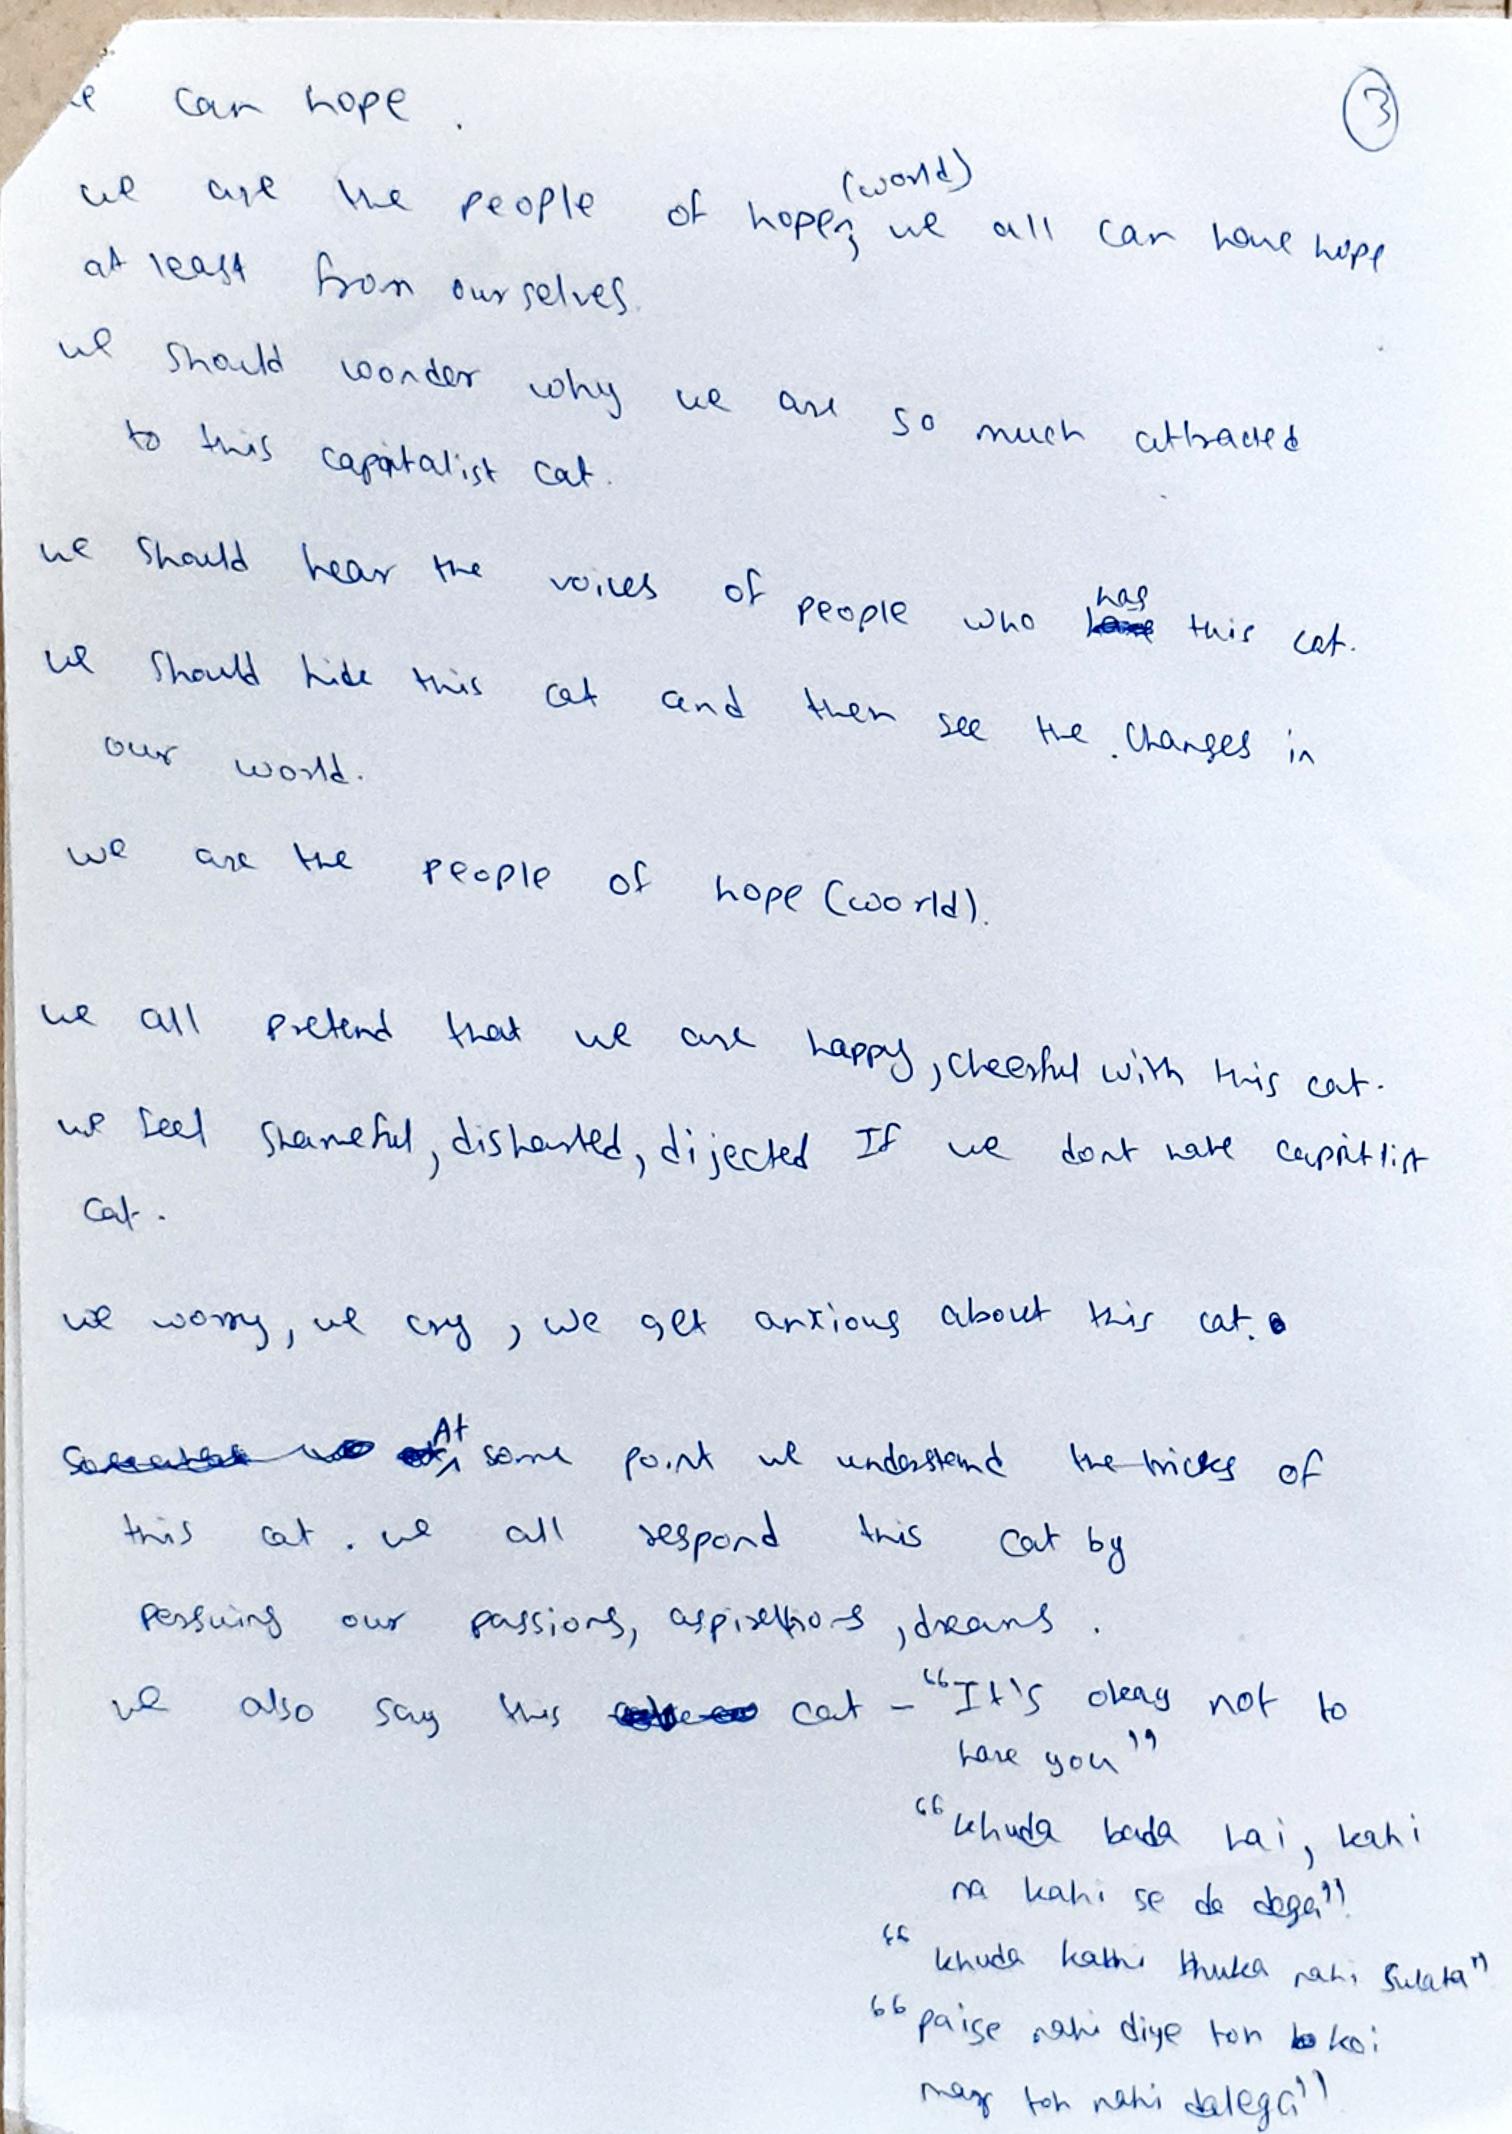 can hope.
3
we are the people of hope, (world) we all can have hope
at least from ourselves.
we should wonder why we are so much attracted
to this capitalist cat.
we should hear the voices of people who has this cat.
we should hide this cat and then see the changes in
our world.
we are the people of hope (world).
we all pretend that we are happy, cheerful with this cat.
we feel shameful, dishearted, dijected If we dont have
cat.
we worry, we cry, we get anxious about this cat.
At some point we understand the tricks of
this cat. we all respond this cat by
persuing our passions, aspirations, dreams.
we also say this cat - "It's okay not to
have you"
"khuda bada hai, kahi
na kahi se de dega"
"khuda kabhi bhuka nahi sulata"
"paise nahi diye toh koi
mar toh nahi dalega"